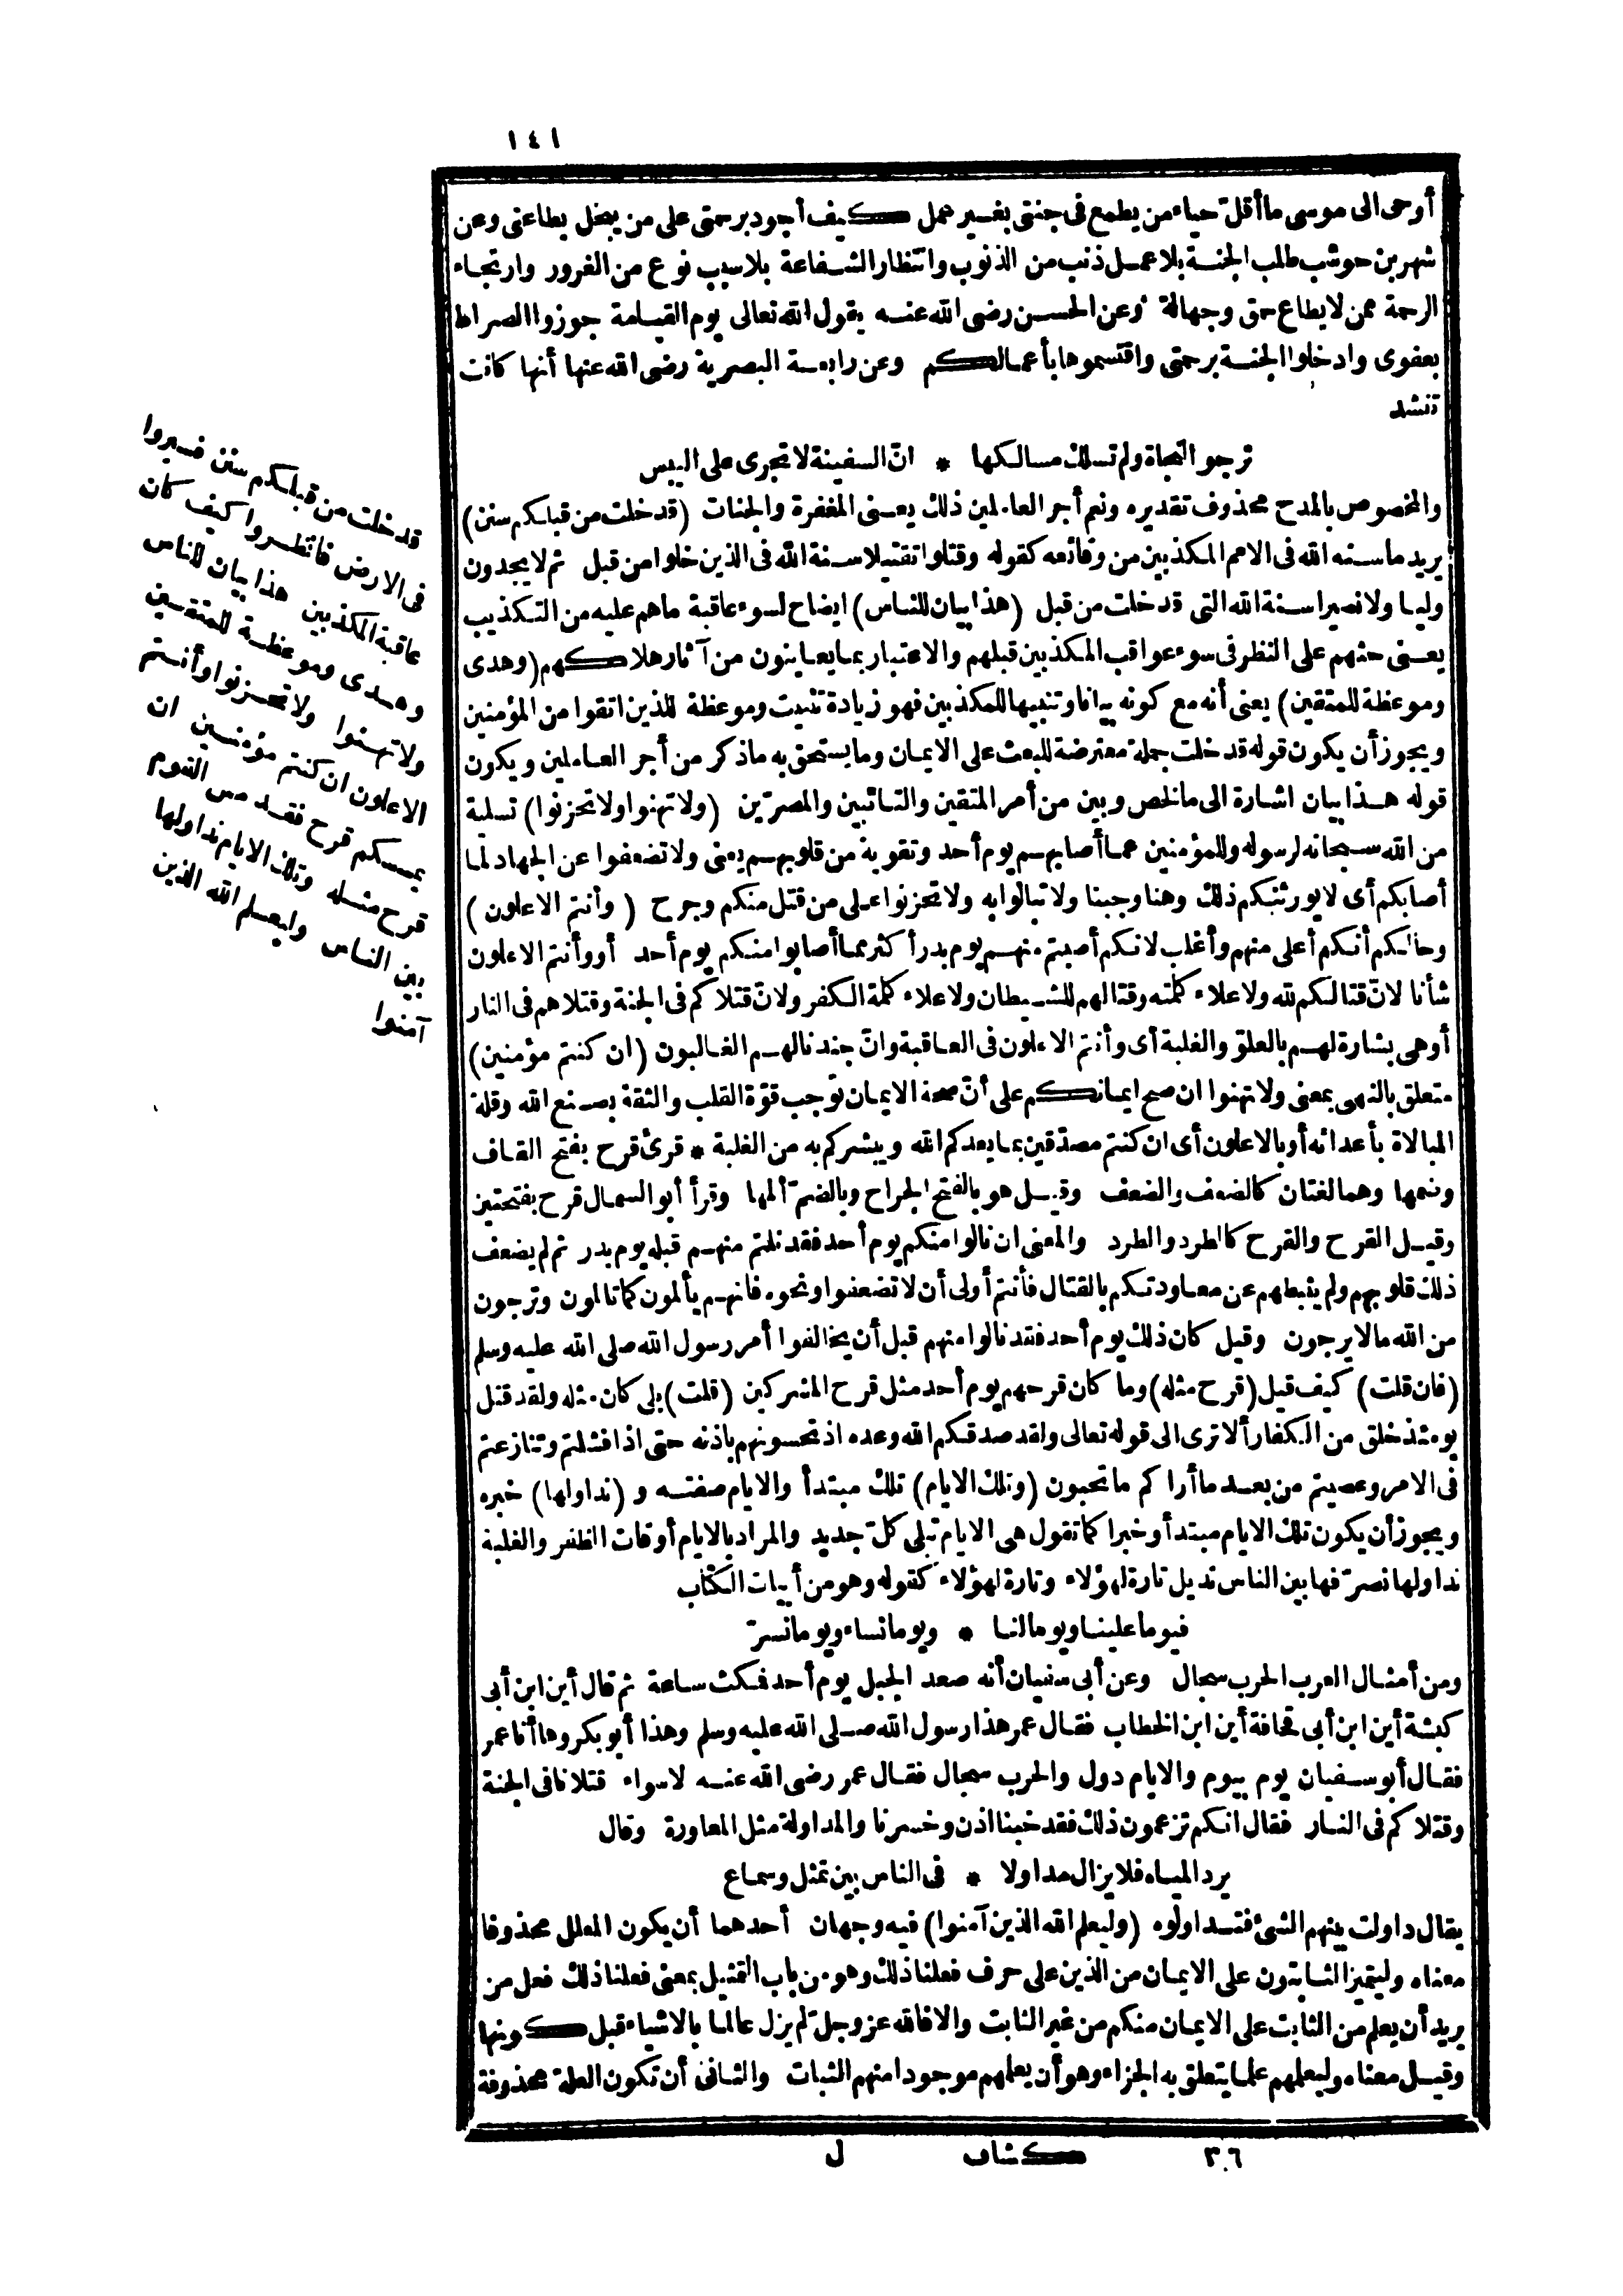 ١٤١
أوحى الى موسى ما أقل حياء من يطمع فى جنتى بغير عمل كيف أجود برحمتى على من يبخل بطاعتى وعن
شهر بن حوشب طلب الجنة بلا عمل ذنب من الذنوب وانتظار الشفاعة بلا سبب نوع من الغرور وارتجاء
الرحمة ممن لا يطاع حمق وجهالة وعن الحسن رضى الله عنه يقول الله تعالى يوم القيامة جوزوا الصراط
بعفوى وادخلوا الجنة برحمتى واقتسموها بأعمالكم وعن رابعة البصرية رضى الله عنها أنها كانت
تنشد
ترجو النجاة ولم تسلك مسالكها * انّ السفينة لا تجرى على اليبس
والمخصوص بالمدح محذوف تقديره ونعم أجر العاملين ذلك يعنى المغفرة والجنات (قد خلت من قبلكم سنن)
يريد ما سنه الله فى الامم المكذبين من وقائعه كقوله وقتلوا تقتيلا سنة الله فى الذين خلوا من قبل ثم لا يجدون
وليا ولا نصيرا سنة الله التى قد خلت من قبل (هذا بيان للناس) ايضاح لسوء عاقبة ما هم عليه من التكذيب
يعنى حثهم على النظر فى سوء عواقب المكذبين قبلهم والاعتبار بما يعاينون من آثار هلاكهم (وهدى
وموعظة للمتقين) يعنى أنه مع كونه بيانا وتنبيها للمكذبين فهو زيادة تثبيت وموعظة للذين اتقوا من المؤمنين
ويجوز أن يكون قوله قد خلت جملة معترضة للبعث على الايمان وما يستحق به ما ذكر من أجر العاملين ويكون
قوله هذا بيان اشارة الى ما لخص وبين من أمر المتقين والتائبين والمصرّين (ولا تهنوا ولا تحزنوا) تسلية
من الله سبحانه لرسوله وللمؤمنين عما أصابهم يوم أحد وتقوية من قلوبهم يعنى ولا تضعفوا عن الجهاد لما
أصابكم أى لا يورثنكم ذلك وهنا وجبنا ولا تبالوا به ولا تحزنوا على من قتل منكم وجرح (وأنتم الاعلون)
وحالكم أنكم أعلى منهم وأغلب لانكم أصبتم منهم يوم بدر أكثر مما أصابوا منكم يوم أحد أو وأنتم الاعلون
شأنا لانّ قتالكم لله ولاعلاء كلمته وقتالهم للشيطان ولاعلاء كلمة الكفر ولانّ قتلاكم فى الجنة وقتلاهم فى النار
أو هى بشارة لهم بالعلوّ والغلبة أى وأنتم الاعلون فى العاقبة وانّ جندنا لهم الغالبون (ان كنتم مؤمنين)
متعلق بالنهى بمعنى ولا تهنوا ان صح ايمانكم على أنّ صحة الايمان توجب قوّة القلب والثقة بصنع الله وقلة
المبالاة بأعدائه أو بالاعلون أى ان كنتم مصدّقين بما يعدكم الله ويبشركم به من الغلبة * قرئ قرح بفتح القاف
وضمها وهما لغتان كالضعف والضعف وقيل هو بالفتح الجراح وبالضمّ ألمها وقرأ أبو السمال قرح بفتحتين
وقيل القرح والقرح كالطرد والطرد والمعنى ان نالوا منكم يوم أحد فقد نلتم منهم قبله يوم بدر ثم لم يضعف
ذلك قلوبهم ولم يثبطهم عن معاودتكم بالقتال فأنتم أولى أن لا تضعفوا ونحوه فانهم يألمون كما تألمون وترجون
من الله ما لا يرجون وقيل كان ذلك يوم أحد فقد نالوا منهم قبل أن يخالفوا أمر رسول الله صلى الله عليه وسلم
(فان قلت) كيف قيل (قرح مثله) وما كان قرحهم يوم أحد مثل قرح المشركين (قلت) بلى كان مثله ولقد قتل
يومئذ خلق من الكفار ألا ترى الى قوله تعالى ولقد صدقكم الله وعده اذ تحسونهم باذنه حتى اذا فشلتم وتنازعتم
فى الامر وعصيتم من بعد ما أراكم ما تحبون (وتلك الايام) تلك مبتدأ والايام صفته و (نداولها) خبره
ويجوز أن يكون تلك الايام مبتدأ وخبرا كما تقول هى الايام تبلى كلّ جديد والمراد بالايام أوقات الظفر والغلبة
نداولها نصرّفها بين الناس نديل تارة لهؤلاء وتارة لهؤلاء كقوله وهو من أبيات الكتاب
فيوما علينا ويوما لنا * ويوما نساء ويوما نسرّ
ومن أمثال العرب الحرب سجال وعن أبى سفيان أنه صعد الجبل يوم أحد فمكث ساعة ثم قال أين ابن أبى
كبشة أين ابن أبى قحافة أين ابن الخطاب فقال عمر هذا رسول الله صلى الله عليه وسلم وهذا أبو بكر وها أنا عمر
فقال أبو سفيان يوم بيوم والايام دول والحرب سجال فقال عمر رضى الله عنه لا سواء قتلانا فى الجنة
وقتلاكم فى النار فقال انكم تزعمون ذلك فقد خبنا اذن وخسرنا والمداولة مثل المعاورة وقال
يرد المياه فلا يزال مداولا * فى الناس بين تمثل وسماع
يقال داولت بينهم الشئ فتداولوه (وليعلم الله الذين آمنوا) فيه وجهان أحدهما أن يكون المعلل محذوفا
معناه وليتميز الثابتون على الايمان من الذين على حرف فعلنا ذلك وهو من باب التمثيل بمعنى فعلنا ذلك فعل من
يريد أن يعلم من الثابت على الايمان منكم من غير الثابت والا فالله عز وجلّ لم يزل عالما بالاشياء قبل كونها
وقيل معناه وليعلمهم علما يتعلق به الجزاء وهو أن يعلمهم موجودا منهم الثبات والثانى أن تكون العلة محذوفة
قد خلت من قبلكم سنن فسيروا
فى الارض فانظروا كيف كان
عاقبة المكذبين هذا بيان للناس
وهدى وموعظة للمتقين
ولا تهنوا ولا تحزنوا وأنتم
الاعلون ان كنتم مؤمنين ان
يمسسكم قرح فقد مس القوم
قرح مثله وتلك الايام نداولها
بين الناس وليعلم الله الذين
آمنوا
٣٦ كشاف ل